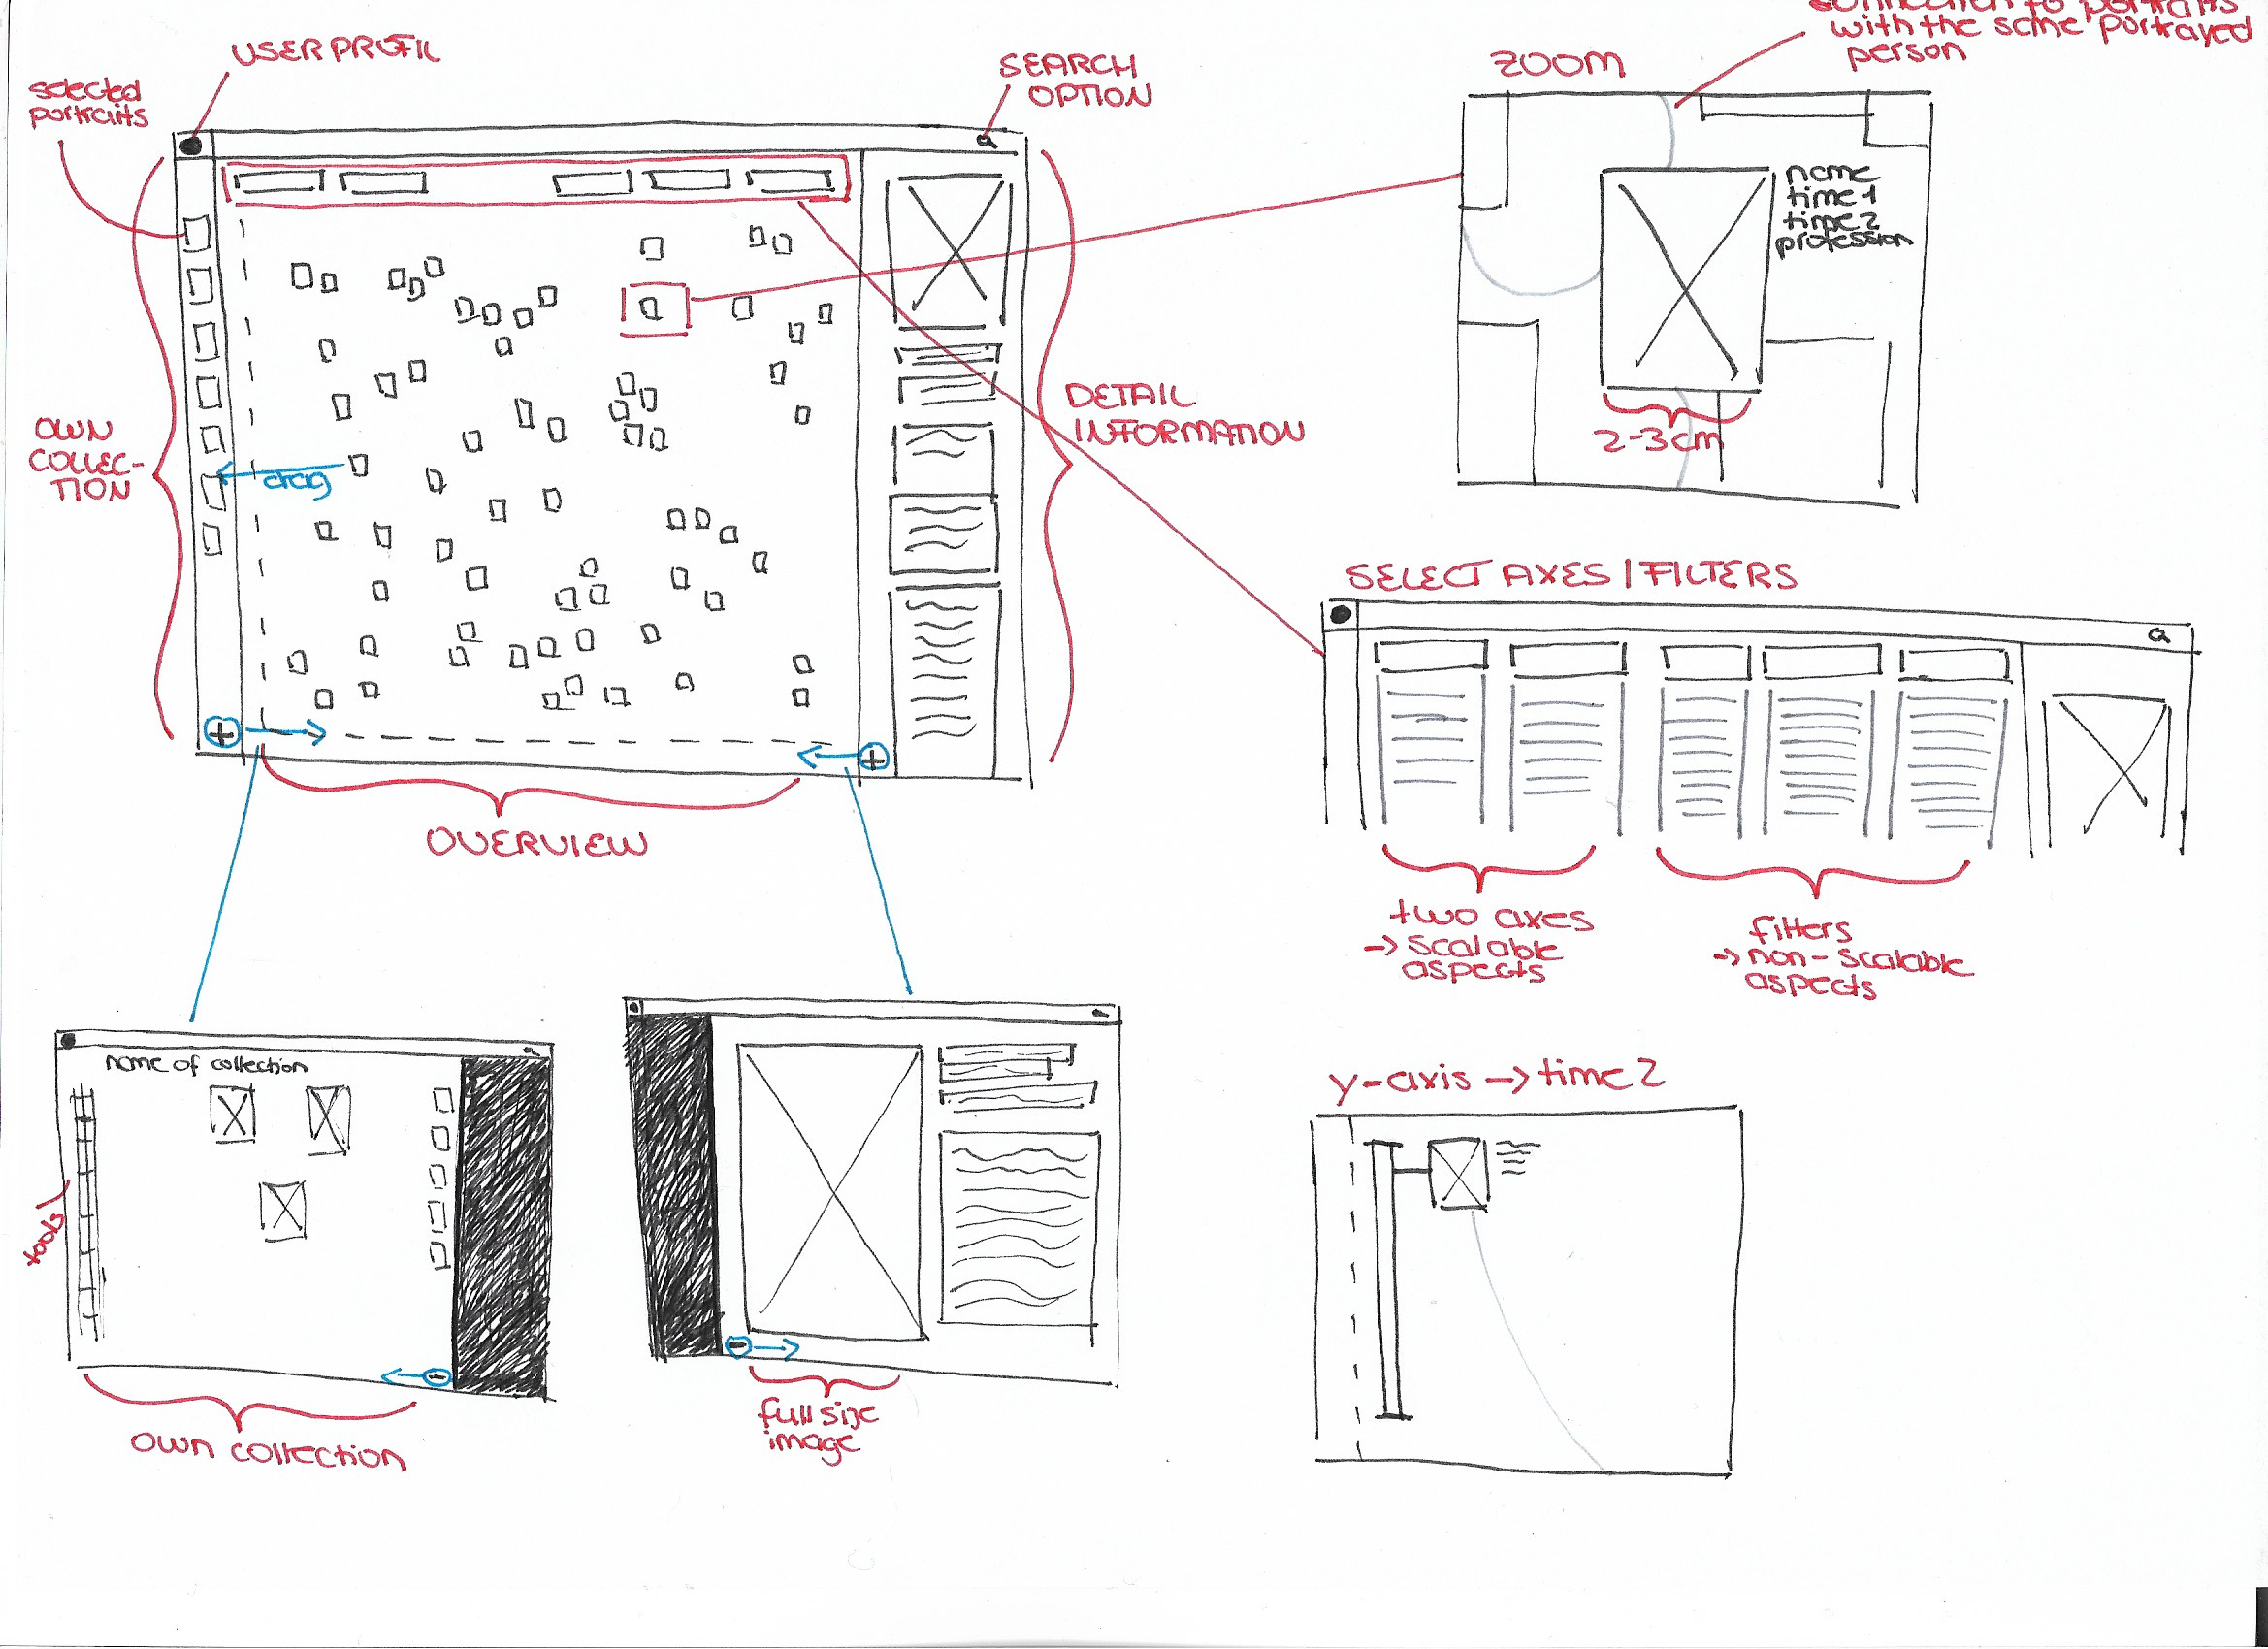 USER PROFIL
selected
portraits
SEARCH
OPTION
ZOOM
connection to portraits
with the same portrayed
person
name
time 1
time 2
profession
2-3cm
OWN
COLLEC-
TION
drag
DETAIL
INFORMATION
OVERVIEW
SELECT AXES / FILTERS
two axes
-> scalable
aspects
filters
-> non-scalable
aspects
name of collection
tools
own collection
full size
image
y-axis -> time 2